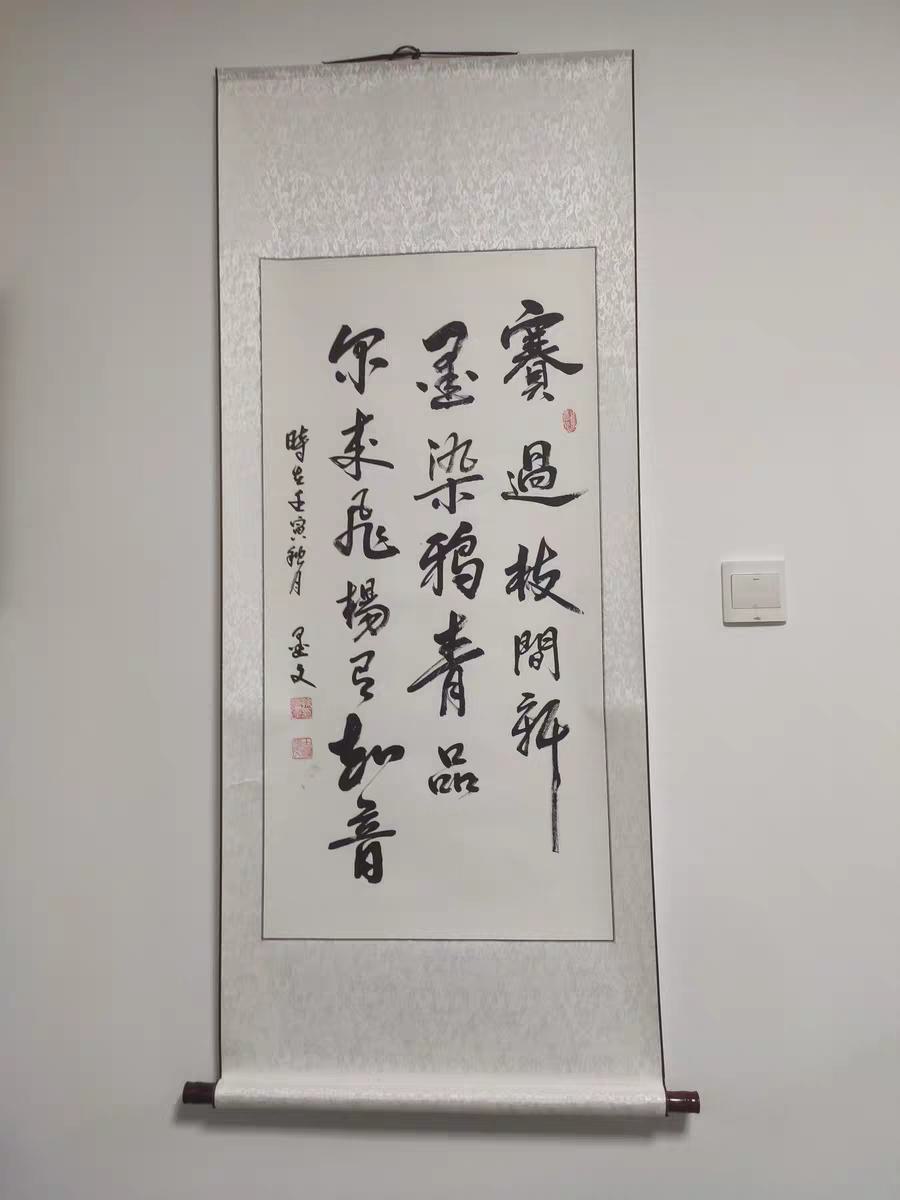 賽過枝間新
墨染鴉青品
尔来飛楊有知音
時在壬寅秋月 墨文